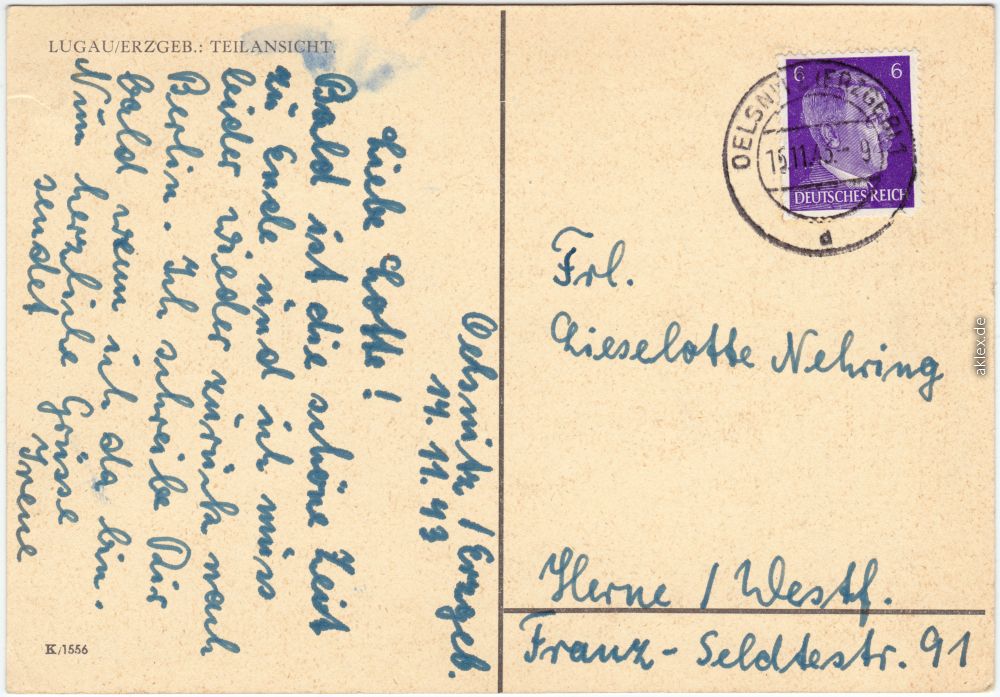 LUGAU/ERZGEB.: TEILANSICHT.
Oelsnitz / Erzgeb.
14. 11. 43
Liebe Lotte!
Bald ist die schöne Zeit
zu Ende und ich muss
leider wieder zurück nach
Berlin. Ich schreibe Dir
bald wenn ich da bin.
Nun herzliche Grüsse
sendet
Irene
K/1556
6 6
DEUTSCHES REICH
OELSNITZ (ERZGEB) 1
15.11.43.- 9
d
Frl.
Lieselotte Nehring
Herne / Westf.
Franz-Seldtestr. 91
aklex.de